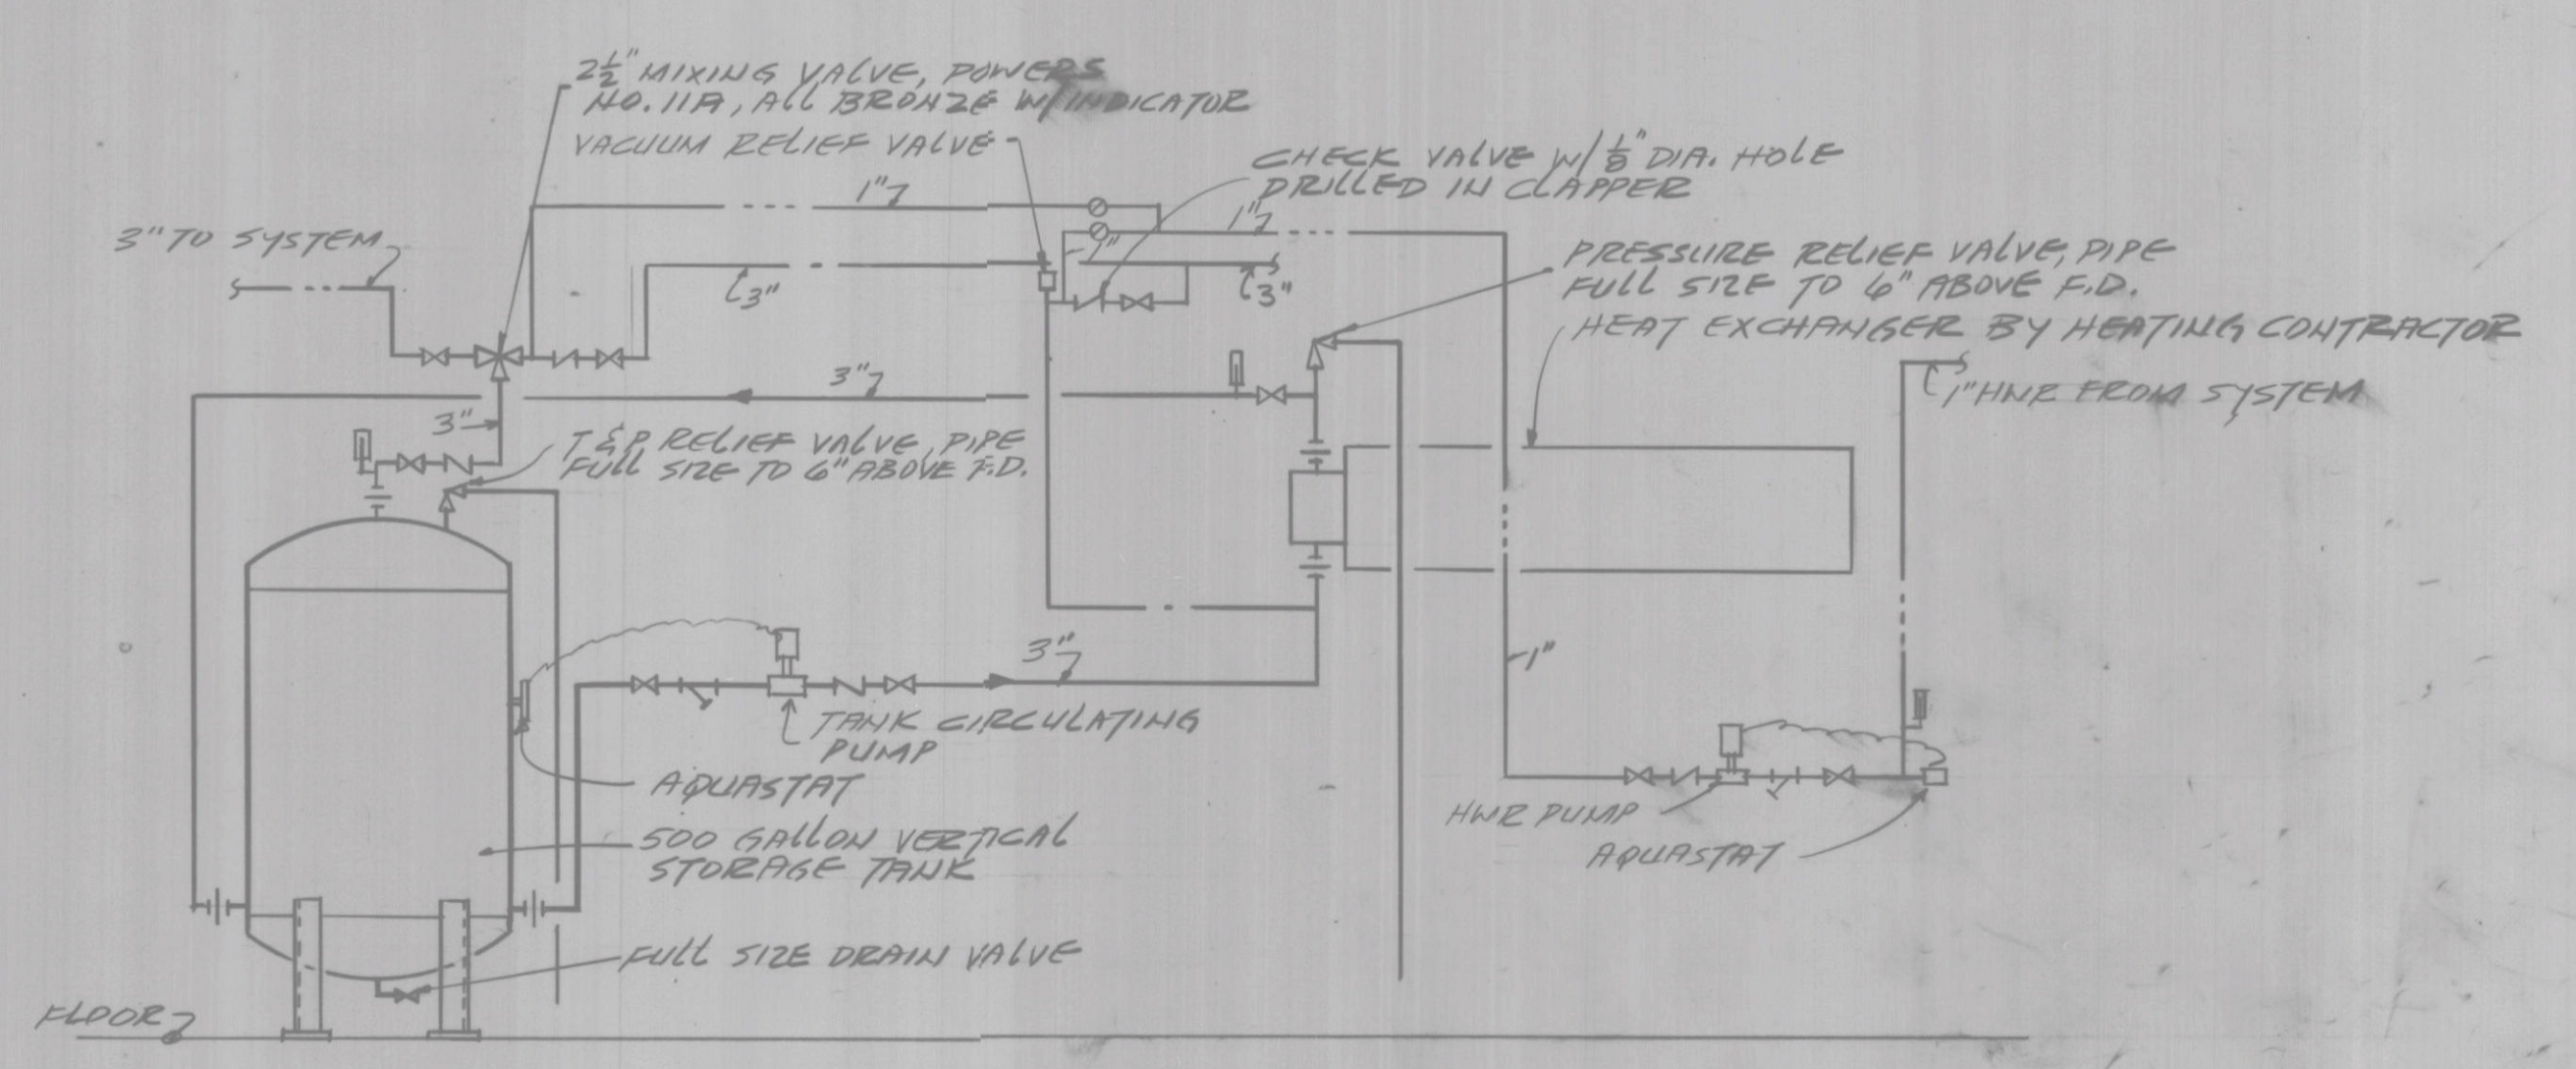 2½" MIXING VALVE, POWERS
NO. 11A, ALL BRONZE W/INDICATOR
VACUUM RELIEF VALVE
CHECK VALVE W/ ⅛" DIA. HOLE
DRILLED IN CLAPPER
1"
1"
1"
3" TO SYSTEM
3"
3"
PRESSURE RELIEF VALVE, PIPE
FULL SIZE TO 6" ABOVE F.D.
HEAT EXCHANGER BY HEATING CONTRACTOR
1" HWR FROM SYSTEM
3"
3"
T&P RELIEF VALVE, PIPE
FULL SIZE TO 6" ABOVE F.D.
3"
1"
TANK CIRCULATING
PUMP
AQUASTAT
HWR PUMP
AQUASTAT
500 GALLON VERTICAL
STORAGE TANK
FULL SIZE DRAIN VALVE
FLOOR